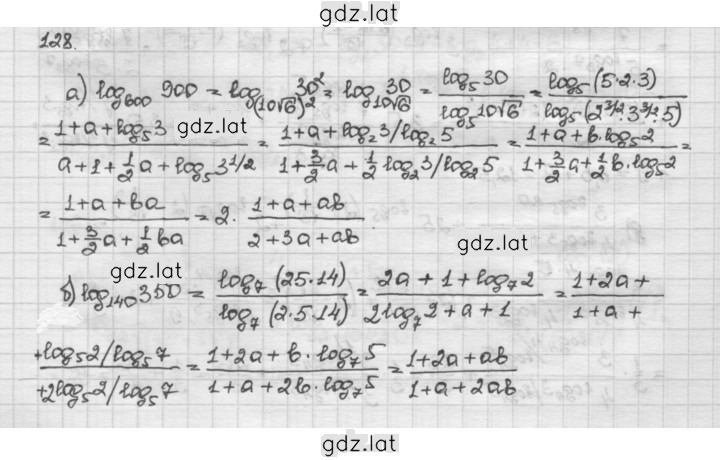 gdz.lat
128.
а) log₆₀₀ 900 = log_{(10√6)²} 30² = log_{10√6} 30 = \frac{log₅ 30}{log₅ 10√6} = \frac{log₅ (5·2·3)}{log₅ (2^{3/2}·3^{3/2}·5)}
gdz.lat
= \frac{1+a+log₅ 3}{a+1+\frac{1}{2}a+log₅ 3^{1/2}} = \frac{1+a+log₂ 3/log₂ 5}{1+\frac{3}{2}a+\frac{1}{2}log₂ 3/log₂ 5} = \frac{1+a+b·log₅ 2}{1+\frac{3}{2}a+\frac{1}{2}b·log₅ 2} =
= \frac{1+a+ba}{1+\frac{3}{2}a+\frac{1}{2}ba} = 2· \frac{1+a+ab}{2+3a+ab}
gdz.lat
gdz.lat
б) log₁₄₀ 350 = \frac{log₇ (25·14)}{log₇ (2·5·14)} = \frac{2a+1+log₇ 2}{2log₇ 2+a+1} = \frac{1+2a+}{1+a+}
\frac{+log₅ 2/log₅ 7}{+2log₅ 2/log₅ 7} = \frac{1+2a+b·log₇ 5}{1+a+2b·log₇ 5} = \frac{1+2a+ab}{1+a+2ab}
gdz.lat